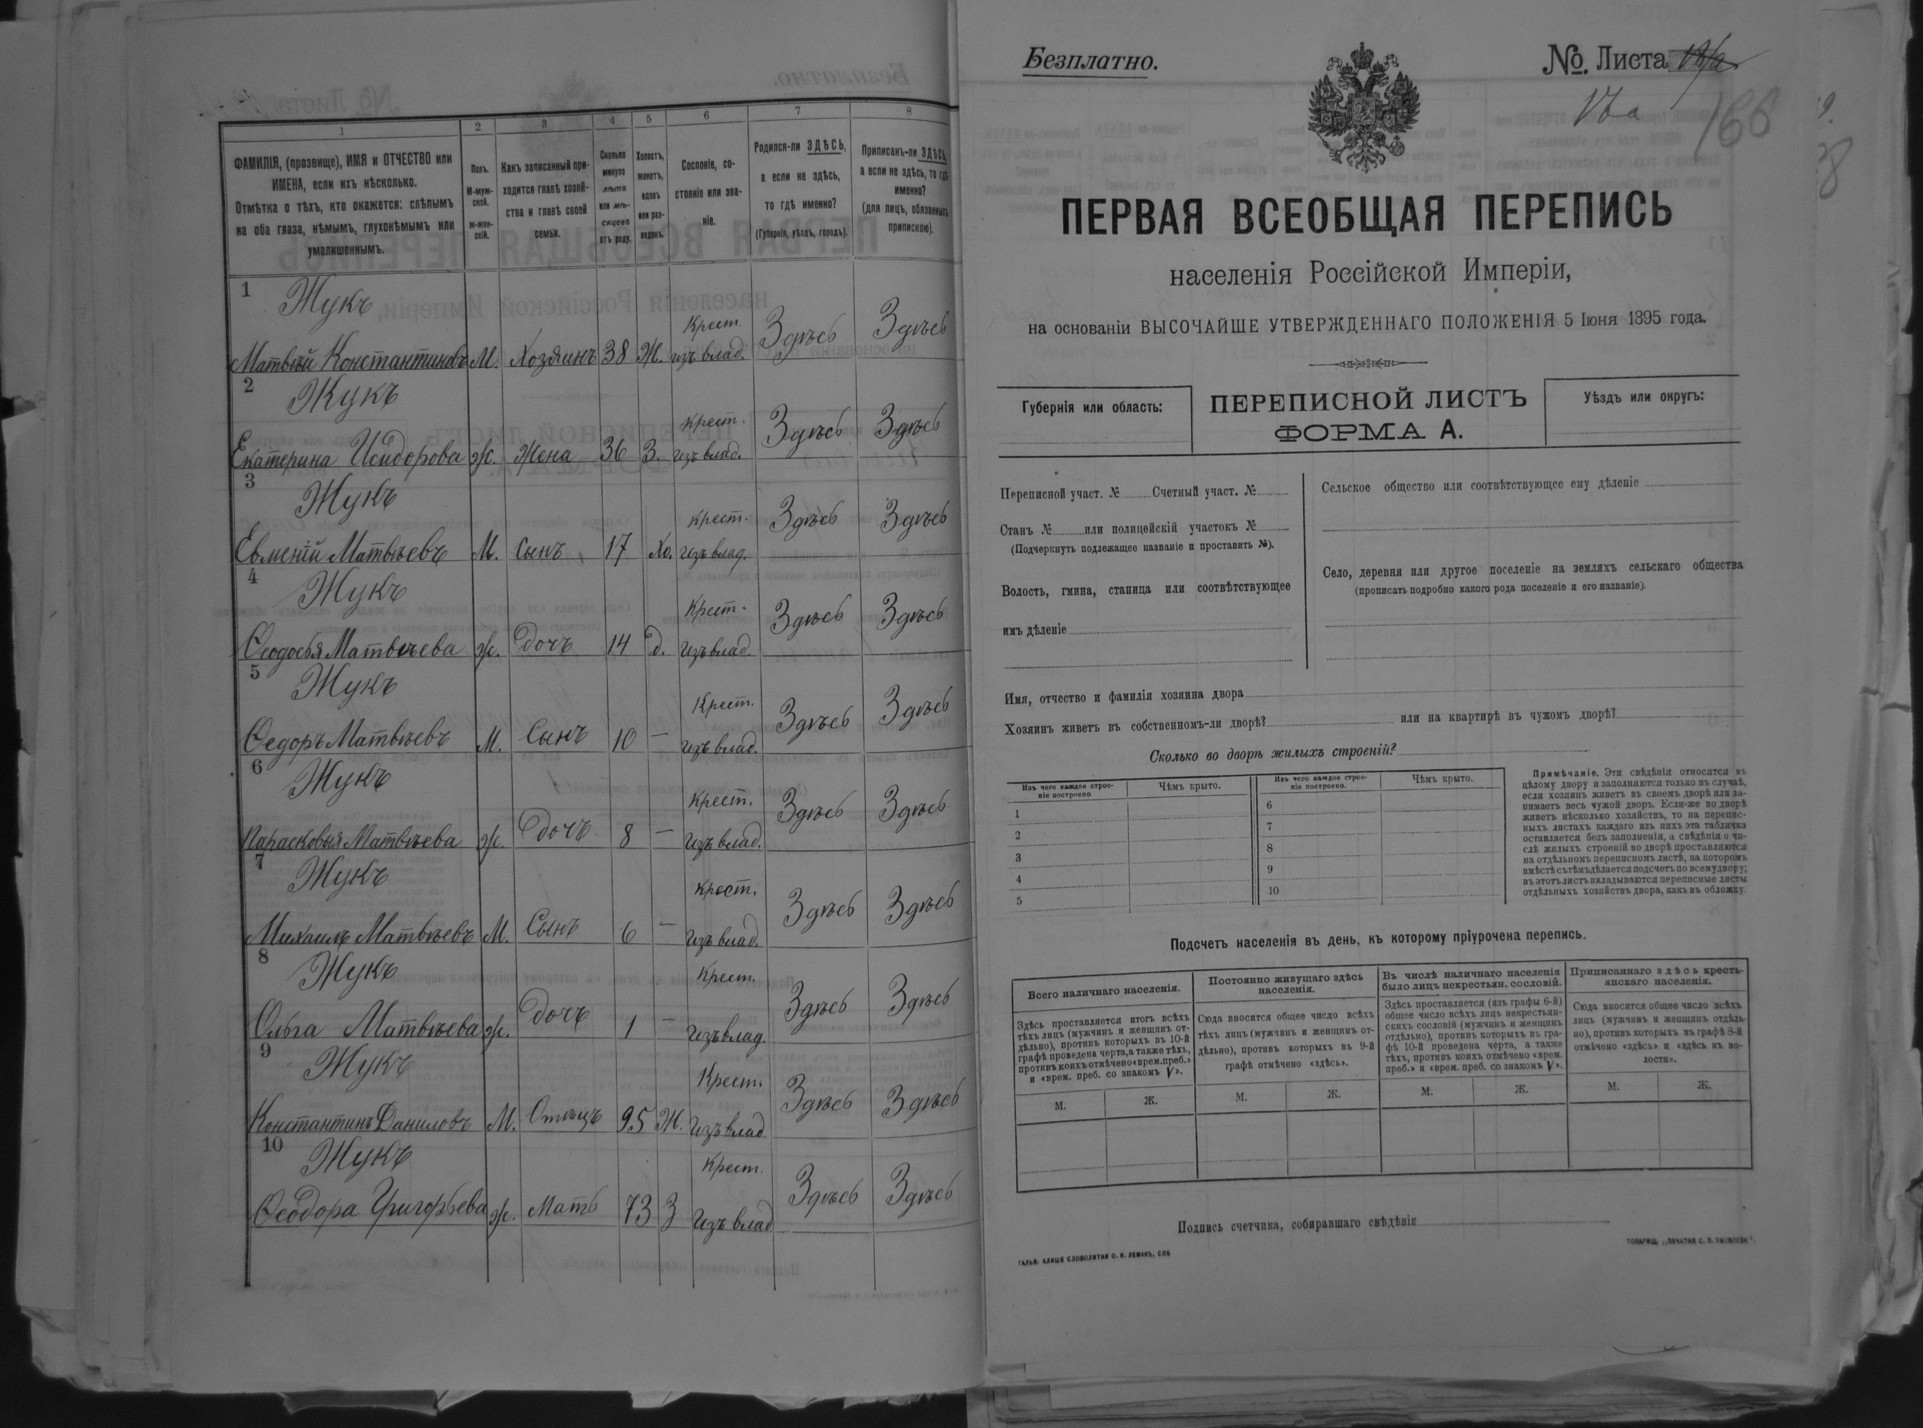 1 2 3 4 5 6 7 8
ФАМИЛІЯ, (прозвище), ИМЯ и ОТЧЕСТВО или ИМЕНА, если ихъ нѣсколько.
Отмѣтка о тѣхъ, кто окажется: слѣпымъ на оба глаза, нѣмымъ, глухонѣмымъ или умалишеннымъ.
Полъ. М-муж-ской. Ж-жен-скій.
Какъ записанный при-ходится главѣ хозяй-ства и главѣ своей семьи.
Сколько минуло лѣтъ или мѣ-сяцевъ отъ роду.
Холостъ, женатъ, вдовъ или раз-веденъ.
Сословіе, со-стояніе или зва-ніе.
Родился-ли ЗДѢСЬ, а если не здѣсь, то гдѣ именно?
(Губернія, уѣздъ, городъ).
Приписанъ-ли ЗДѢСЬ, а если не здѣсь, то гдѣ именно?
(для лицъ, обязанныхъ припискою).
1 Жукъ
Матвѣй Константиновъ М. Хозяинъ 38 Ж. Крест. изъ влад. Здѣсь Здѣсь
2 Жукъ
Екатерина Исидорова ж. Жена 36 З. Крест. изъ влад. Здѣсь Здѣсь
3 Жукъ
Евменій Матвѣевъ М. Сынъ 17 Хо. Крест. изъ влад. Здѣсь Здѣсь
4 Жукъ
Ѳеодосья Матвѣева ж. Дочъ 14 д. Крест. изъ влад. Здѣсь Здѣсь
5 Жукъ
Ѳедоръ Матвѣевъ М. Сынъ 10 — Крест. изъ влад. Здѣсь Здѣсь
6 Жукъ
Парасковья Матвѣева ж. Дочъ 8 — Крест. изъ влад. Здѣсь Здѣсь
7 Жукъ
Михаилъ Матвѣевъ М. Сынъ 6 — Крест. изъ влад. Здѣсь Здѣсь
8 Жукъ
Ольга Матвѣева ж. Дочъ 1 — Крест. изъ влад. Здѣсь Здѣсь
9 Жукъ
Константинъ Даниловъ М. Отецъ 95 Ж. Крест. изъ влад. Здѣсь Здѣсь
10 Жукъ
Ѳеодора Григорьева ж. Мать 73 З Крест. изъ влад Здѣсь Здѣсь
Безплатно.
№ Листа
17а
166
ПЕРВАЯ ВСЕОБЩАЯ ПЕРЕПИСЬ
населенія Россійской Имперіи,
на основаніи ВЫСОЧАЙШЕ УТВЕРЖДЕННАГО ПОЛОЖЕНІЯ 5 Іюня 1895 года.
Губернія или область:
ПЕРЕПИСНОЙ ЛИСТЪ
ФОРМА А.
Уѣздъ или округъ:
Переписной участ. № Счетный участ. №
Станъ № или полицейскій участокъ №
(Подчеркнуть подлежащее названіе и проставить №).
Волость, гмина, станица или соотвѣтствующее
имъ дѣленіе
Сельское общество или соотвѣтствующее ему дѣленіе
Село, деревня или другое поселеніе на земляхъ сельскаго общества
(прописать подробно какого рода поселеніе и его названіе).
Имя, отчество и фамилія хозяина двора
Хозяинъ живетъ въ собственномъ-ли дворѣ? или на квартирѣ въ чужомъ дворѣ?
Сколько во дворѣ жилыхъ строеній?
Изъ чего каждое строе-ніе построено Чѣмъ крыто. Изъ чего каждое строе-ніе построено. Чѣмъ крыто.
1 6
2 7
3 8
4 9
5 10
Примѣчаніе. Эти свѣдѣнія относятся къ
цѣлому двору и заполняются только въ случаѣ,
если хозяинъ живетъ въ своемъ дворѣ или за-
нимаетъ весь чужой дворъ. Если-же во дворѣ
живетъ нѣсколько хозяйствъ, то на перепис-
ныхъ листахъ каждаго изъ нихъ эта табличка
оставляется безъ заполненія, а свѣдѣнія о чи-
слѣ жилыхъ строеній во дворѣ проставляются
на отдѣльномъ переписномъ листѣ, на которомъ
вмѣстѣ съ тѣмъ дѣлается подсчетъ по всему двору;
въ этотъ листъ вкладываются переписные листы
отдѣльныхъ хозяйствъ двора, какъ въ обложку.
Подсчетъ населенія въ день, къ которому пріурочена перепись.
Всего наличнаго населенія.
Здѣсь проставляется итогъ всѣхъ
тѣхъ лицъ (мужчинъ и женщинъ от-
дѣльно), противъ которыхъ въ 10-й
графѣ проведена черта, а также тѣхъ,
противъ коихъ отмѣчено «врем. преб.»
и «врем. преб. со знакомъ V».
Постоянно живущаго здѣсь
населенія.
Сюда вносится общее число всѣхъ
тѣхъ лицъ (мужчинъ и женщинъ от-
дѣльно), противъ которыхъ въ 9-й
графѣ отмѣчено «здѣсь».
Въ числѣ наличнаго населенія
было лицъ некрестьян. сословій.
Здѣсь проставляется (изъ графы 6-й)
общее число всѣхъ лицъ некрестьян-
скихъ сословій (мужчинъ и женщинъ
отдѣльно), противъ которыхъ въ гра-
фѣ 10-й проведена черта, а также
тѣхъ, противъ коихъ отмѣчено «врем.
преб.» и «врем. преб. со знакомъ V».
Приписаннаго здѣсь кресть-
янскаго населенія.
Сюда вносится общее число всѣхъ
лицъ (мужчинъ и женщинъ отдѣль-
но), противъ которыхъ въ графѣ 8-й
отмѣчено «здѣсь» и «здѣсь въ во-
лости».
М. Ж. М. Ж. М. Ж. М. Ж.
Подпись счетчика, собиравшаго свѣдѣнія
ГАЛЬВ. КЛИШЕ СЛОВОЛИТНИ О. И. ЛЕМАНЪ, СПБ
ТОВАРИЩ. „ПЕЧАТНЯ С. П. ЯКОВЛЕВА".